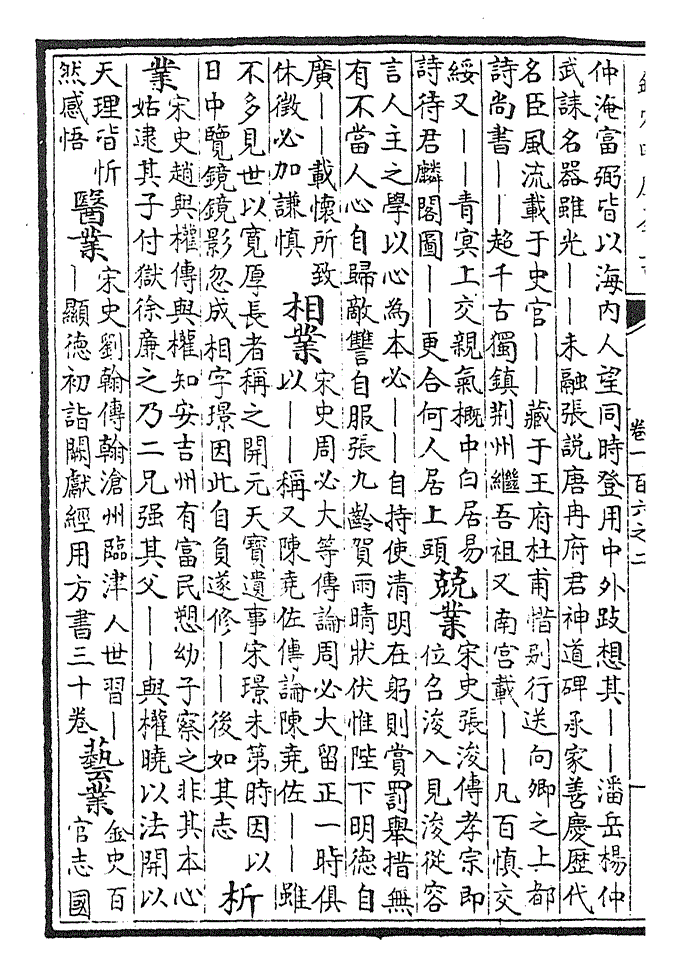 卷一百六之二
仲淹富弼皆以海内人望同時登用中外跂想其――潘岳楊仲
武誄名器雖光――未融張説唐冉府君神道碑承家善慶歴代
名臣風流載于史官――藏于王府杜甫惜别行送向卿之上都
詩尚書――超千古獨鎮荆州繼吾祖又南宫載――凡百慎交
綏又――青冥上交親氣概中白居易
詩待君麟閣圖――更合何人居上頭
兢業
宋史張浚傳孝宗即
位召浚入見浚從容
言人主之學以心為本必――自持使清明在躬則賞罰舉措無
有不當人心自歸敵讐自服張九齡賀雨晴狀伏惟陛下明德自
廣――載懷所致
休徴必加謙慎
相業
宋史周必大等傳論周必大留正一時俱
以――稱又陳堯佐傳論陳堯佐――雖
不多見世以寛厚長者稱之開元天寳遺事宋璟未第時因以
日中覽鏡鏡影忽成相字璟因此自負遂修――後如其志
析
業
宋史趙與權傳與權知安吉州有富民愬幼子察之非其本心
姑逮其子付獄徐廉之乃二兄强其父――與權曉以法開以
天理皆忻
然感悟
醫業
宋史劉翰傳翰滄州臨津人世習―
―顯德初詣闕獻經用方書三十卷
藝業
金史百
官志國